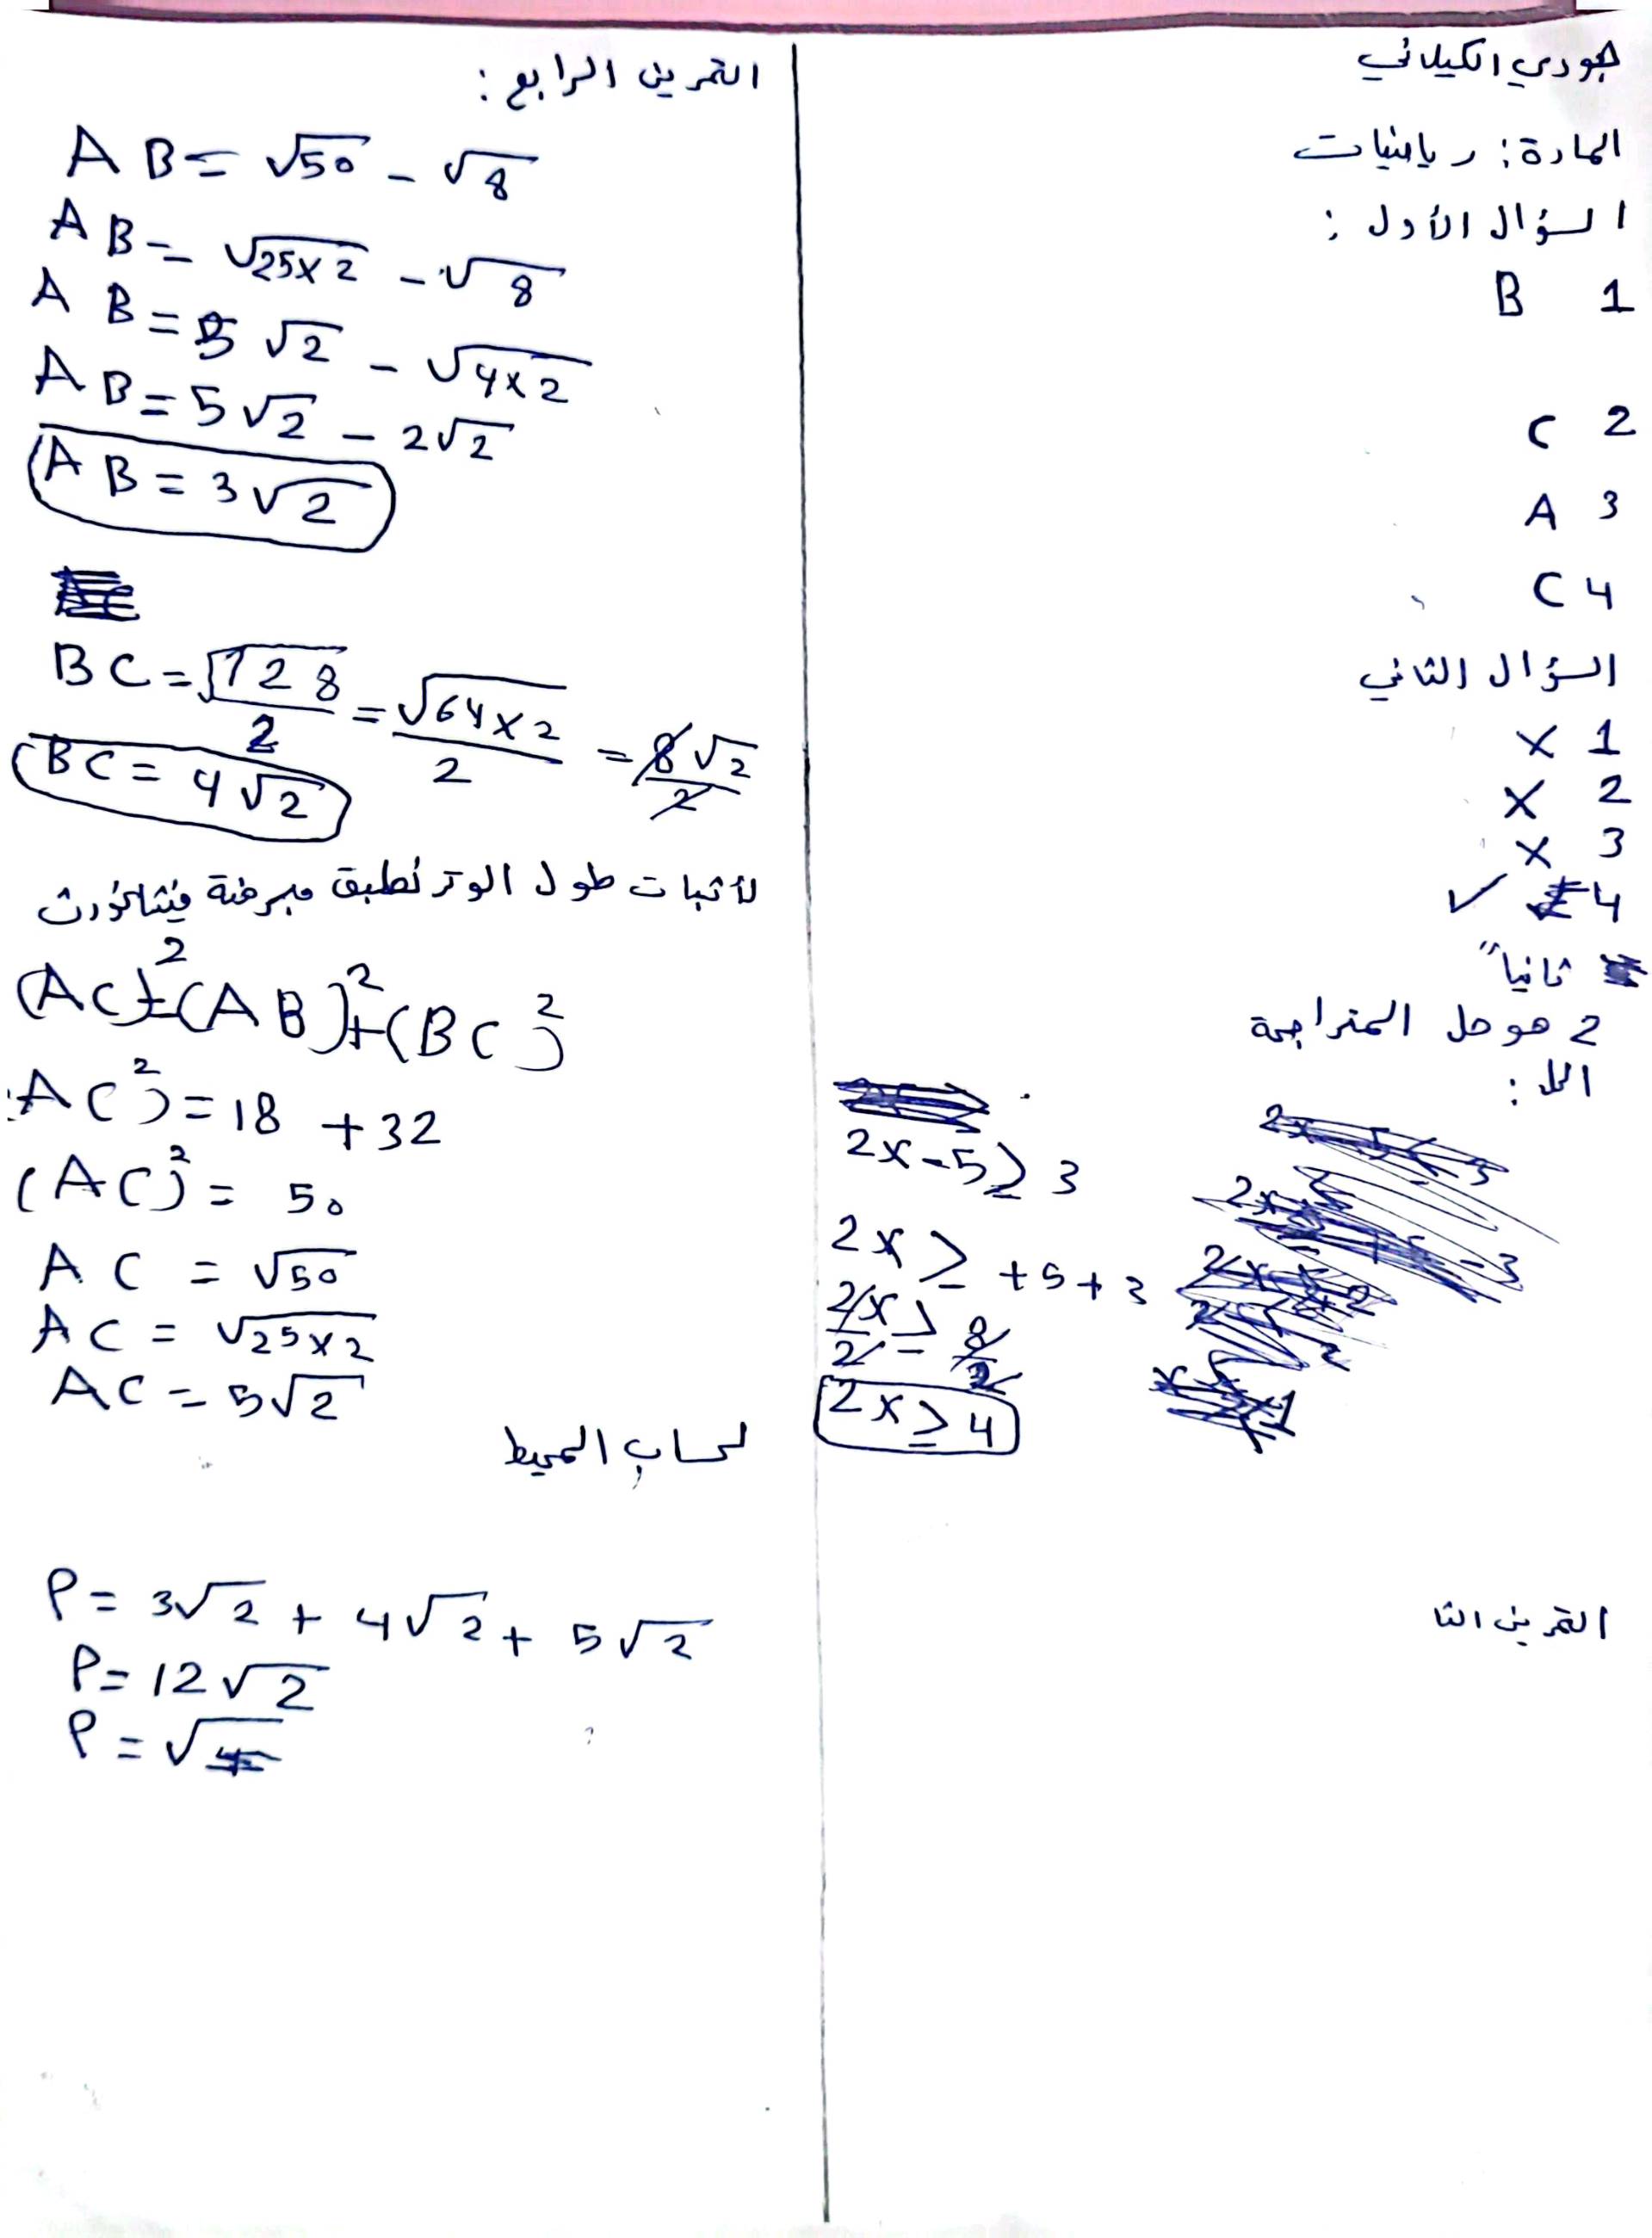 جودي الكيلاني
المادة: رياضيات
السؤال الأول:
1 B
2 C
3 A
4 C
السؤال الثاني
1 X
2 X
3 X
4 ✓
ثانياً"
2 هو حل المتراجحة
الحل:
2x-5≥3
2x≥+5+3
2x/2≥8/2
2x≥4
التمرين الثا
التمرين الرابع:
AB=√50-√8
AB=√25×2-√8
AB=5√2-√4×2
AB=5√2-2√2
AB=3√2
BC=√128/2=√64×2/2=8√2/2
BC=4√2
لأثبات طول الوتر نطبق مبرهنة فيثاغورث
(AC)²=(AB)²+(BC)²
(AC)²=18+32
(AC)²=50
AC=√50
AC=√25×2
AC=5√2
لحساب المحيط
P=3√2+4√2+5√2
P=12√2
P=√